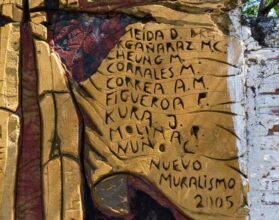 MEÍDA D.
ARGAÑARAZ MC
CHEUNG M.
CORRALES M.
CORREA A.M
FIGUEROA F.
KURA J.
MOLINA F.
NUÑO C.
NUEVO
MURALISMO
2005